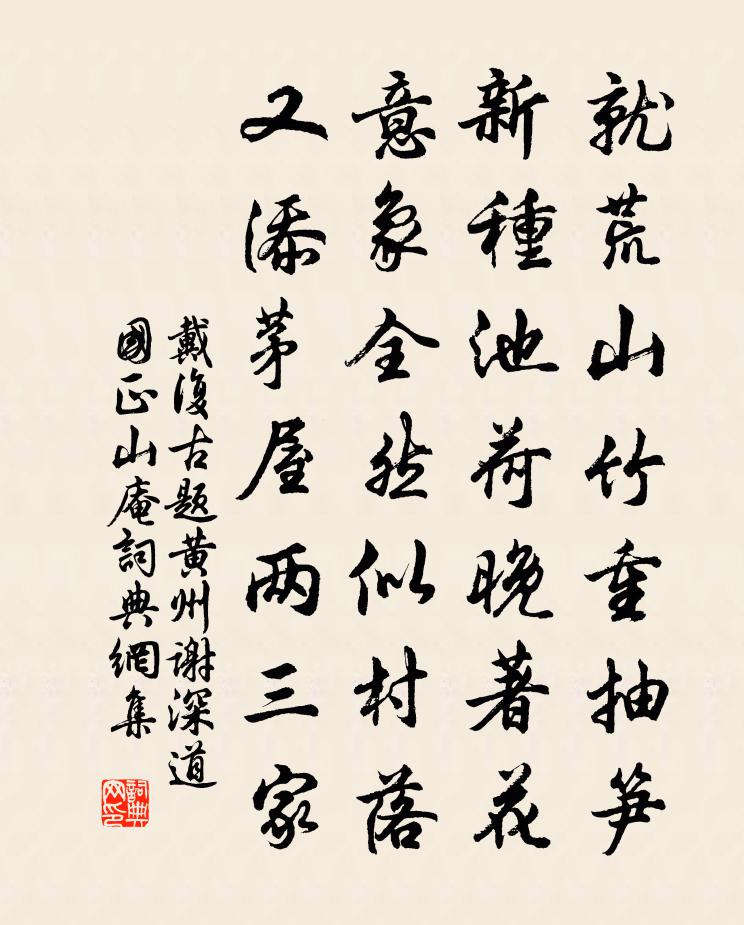 就荒山竹重抽笋
新種池荷晚著花
意象全然似村落
又添茅屋两三家
戴復古题黄州谢深道
國正山庵詞典網集
詞典网印